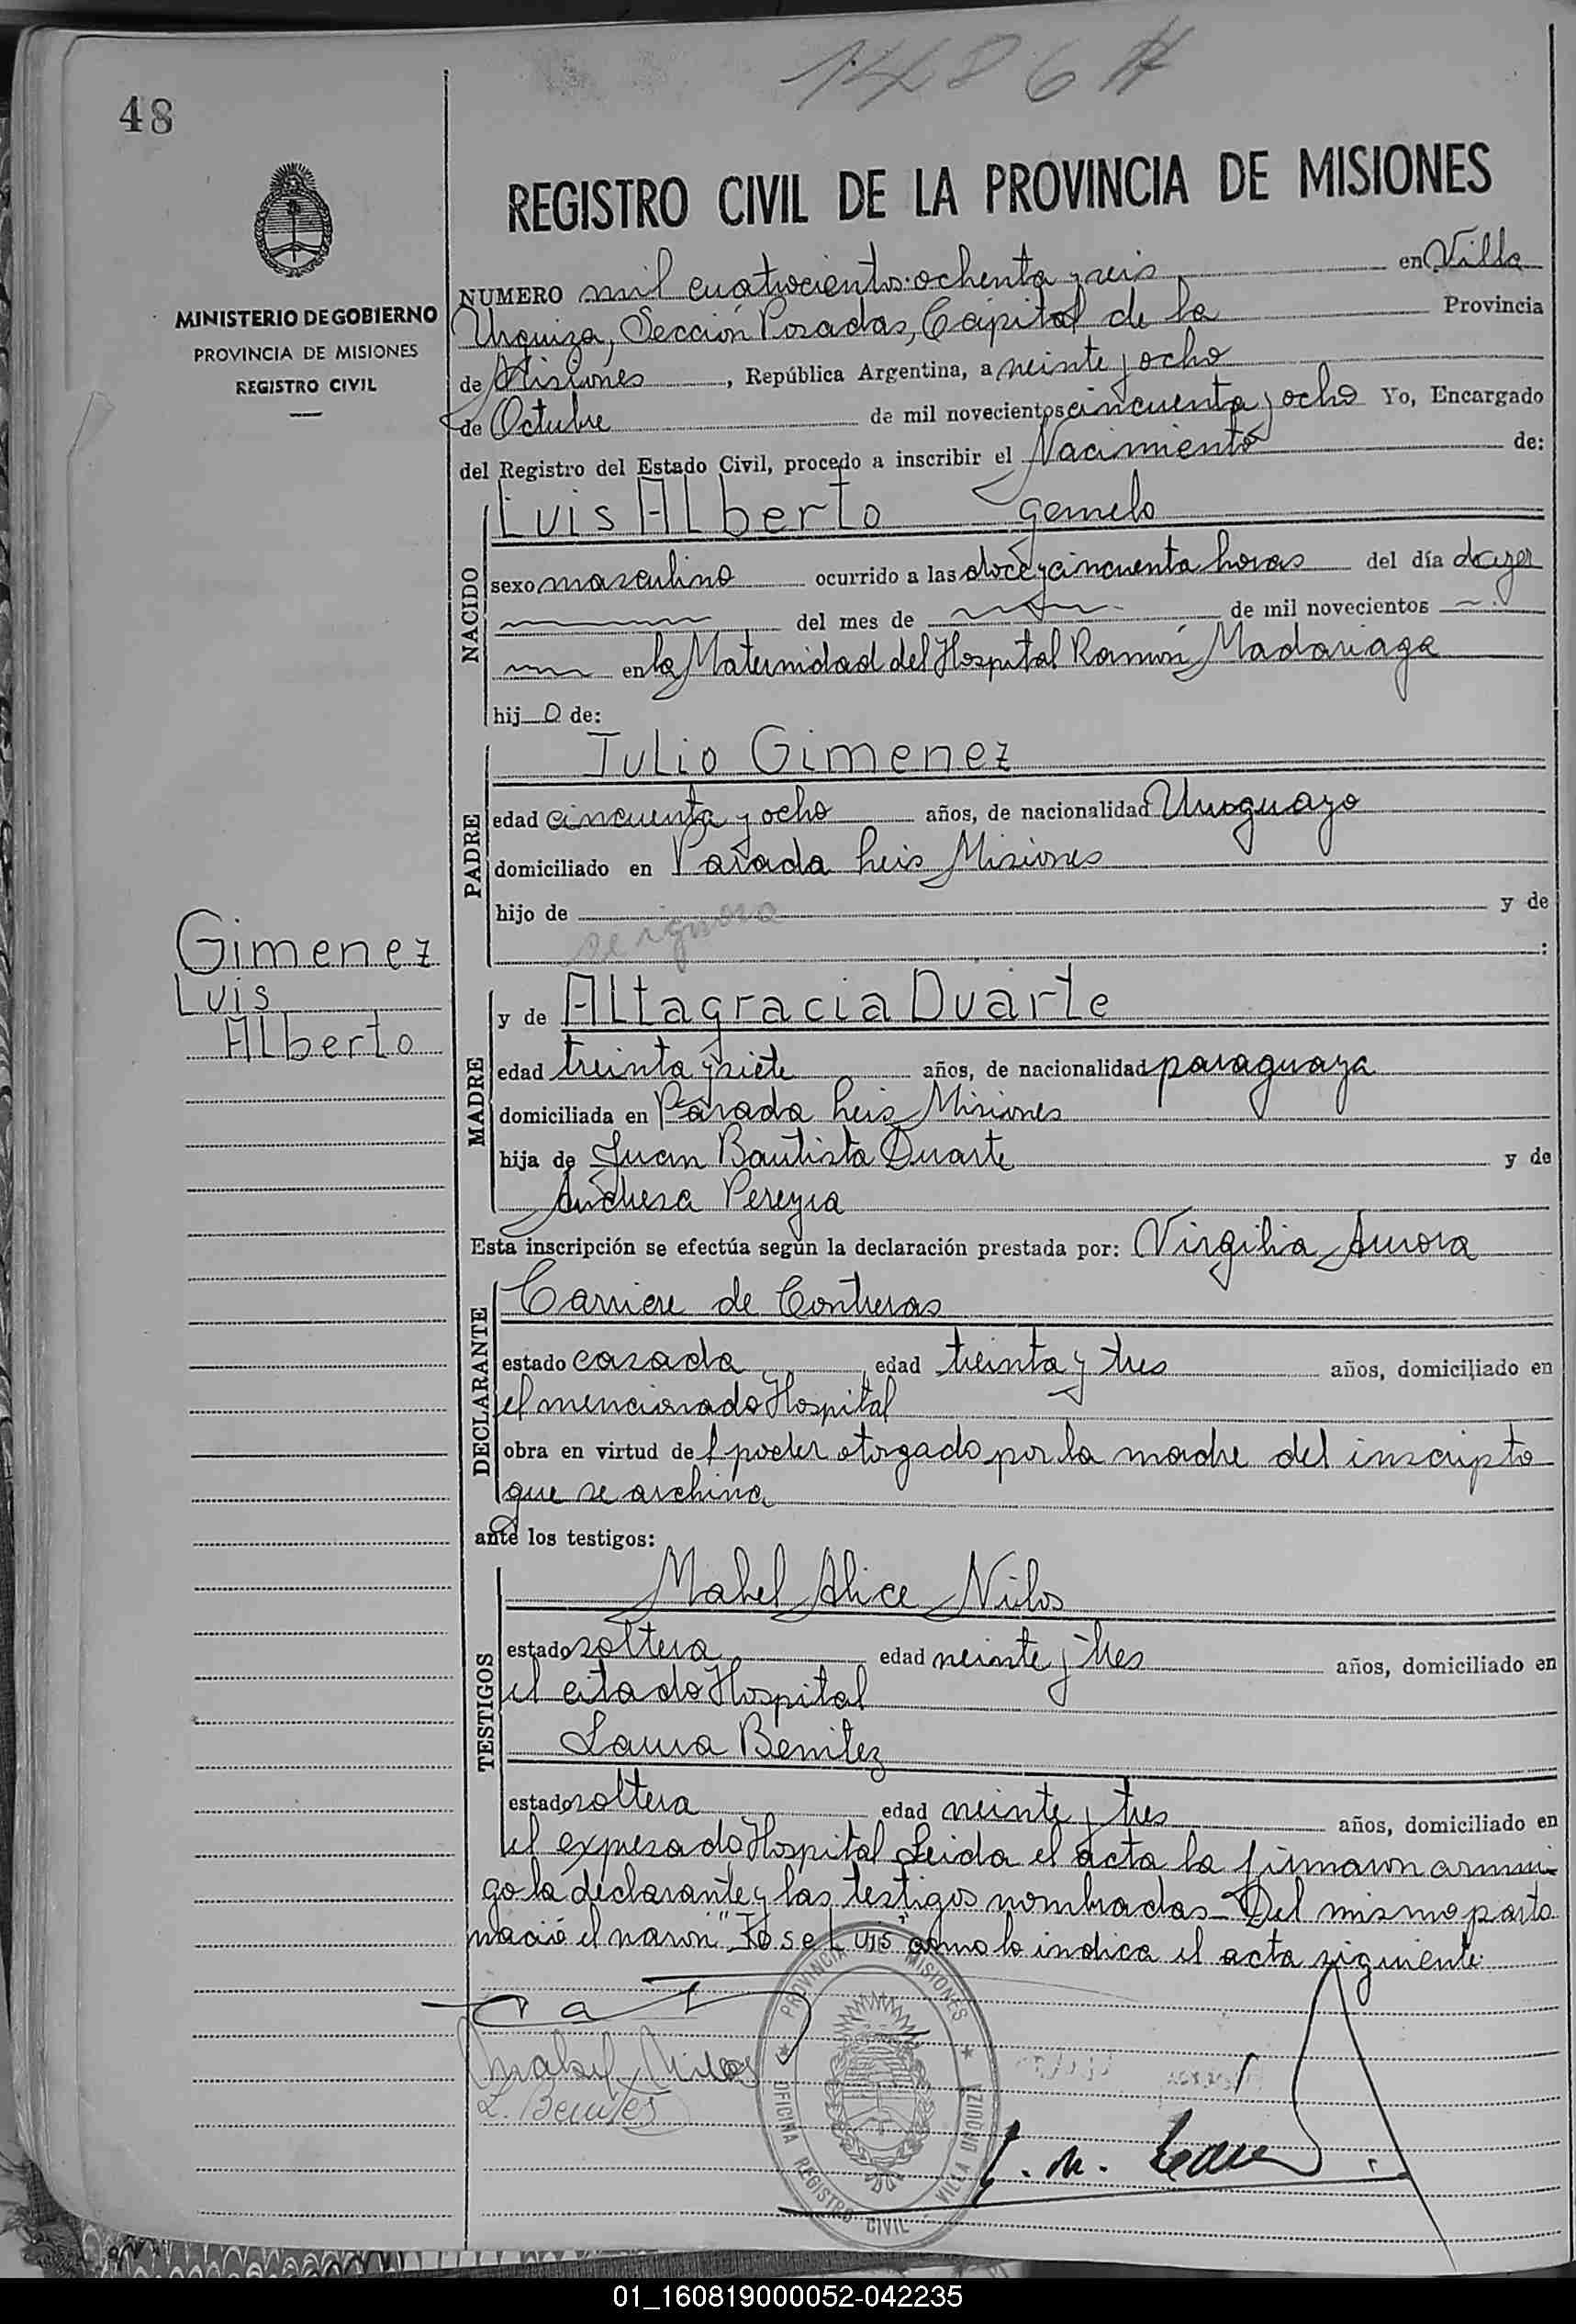 1486
48
REGISTRO CIVIL DE LA PROVINCIA DE MISIONES
MINISTERIO DE GOBIERNO
PROVINCIA DE MISIONES
REGISTRO CIVIL
NUMERO mil cuatrocientos ochenta y seis en Villa
Urquiza, Sección Posadas, Capital de la Provincia
de Misiones, República Argentina, a veinte y ocho
de Octubre de mil novecientos cincuenta y ocho Yo, Encargado
del Registro del Estado Civil, procedo a inscribir el Nacimiento de:
NACIDO
Luis Alberto gemelo
sexo masculino ocurrido a las doce y cincuenta horas del día de ayer
del mes de de mil novecientos
en la Maternidad del Hospital Ramón Madariaga
hijo de:
PADRE
Julio Gimenez
edad cincuenta y ocho años, de nacionalidad Uruguayo
domiciliado en Parada Leis Misiones
hijo de se ignora y de
:
Gimenez
Luis
Alberto
MADRE
y de Altagracia Duarte
edad treinta y siete años, de nacionalidad paraguaya
domiciliada en Parada Leis Misiones
hija de Juan Bautista Duarte y de
Pereyra
Esta inscripción se efectúa según la declaración prestada por: Virgilia Aurora
DECLARANTE
Carriere de Contreras
estado casada edad treinta y tres años, domiciliado en
el mencionado Hospital
obra en virtud del poder otorgado por la madre del inscripto
que se archiva
ante los testigos:
TESTIGOS
Mabel Alice Niilos
estado soltera edad veinte y tres años, domiciliado en
el citado Hospital
Laura Benitez
estado soltera edad veinte y tres años, domiciliado en
el expresado Hospital Leida el acta la firmaron conmi-
go la declarante y las testigos nombradas - Del mismo parto
nació el varón "José Luis" como lo indica el acta siguiente
Mabel Niilos
L. Benítez
PROVINCIA MISIONES
OFICINA REGISTRO CIVIL VILLA URQUIZA
01_160819000052-042235